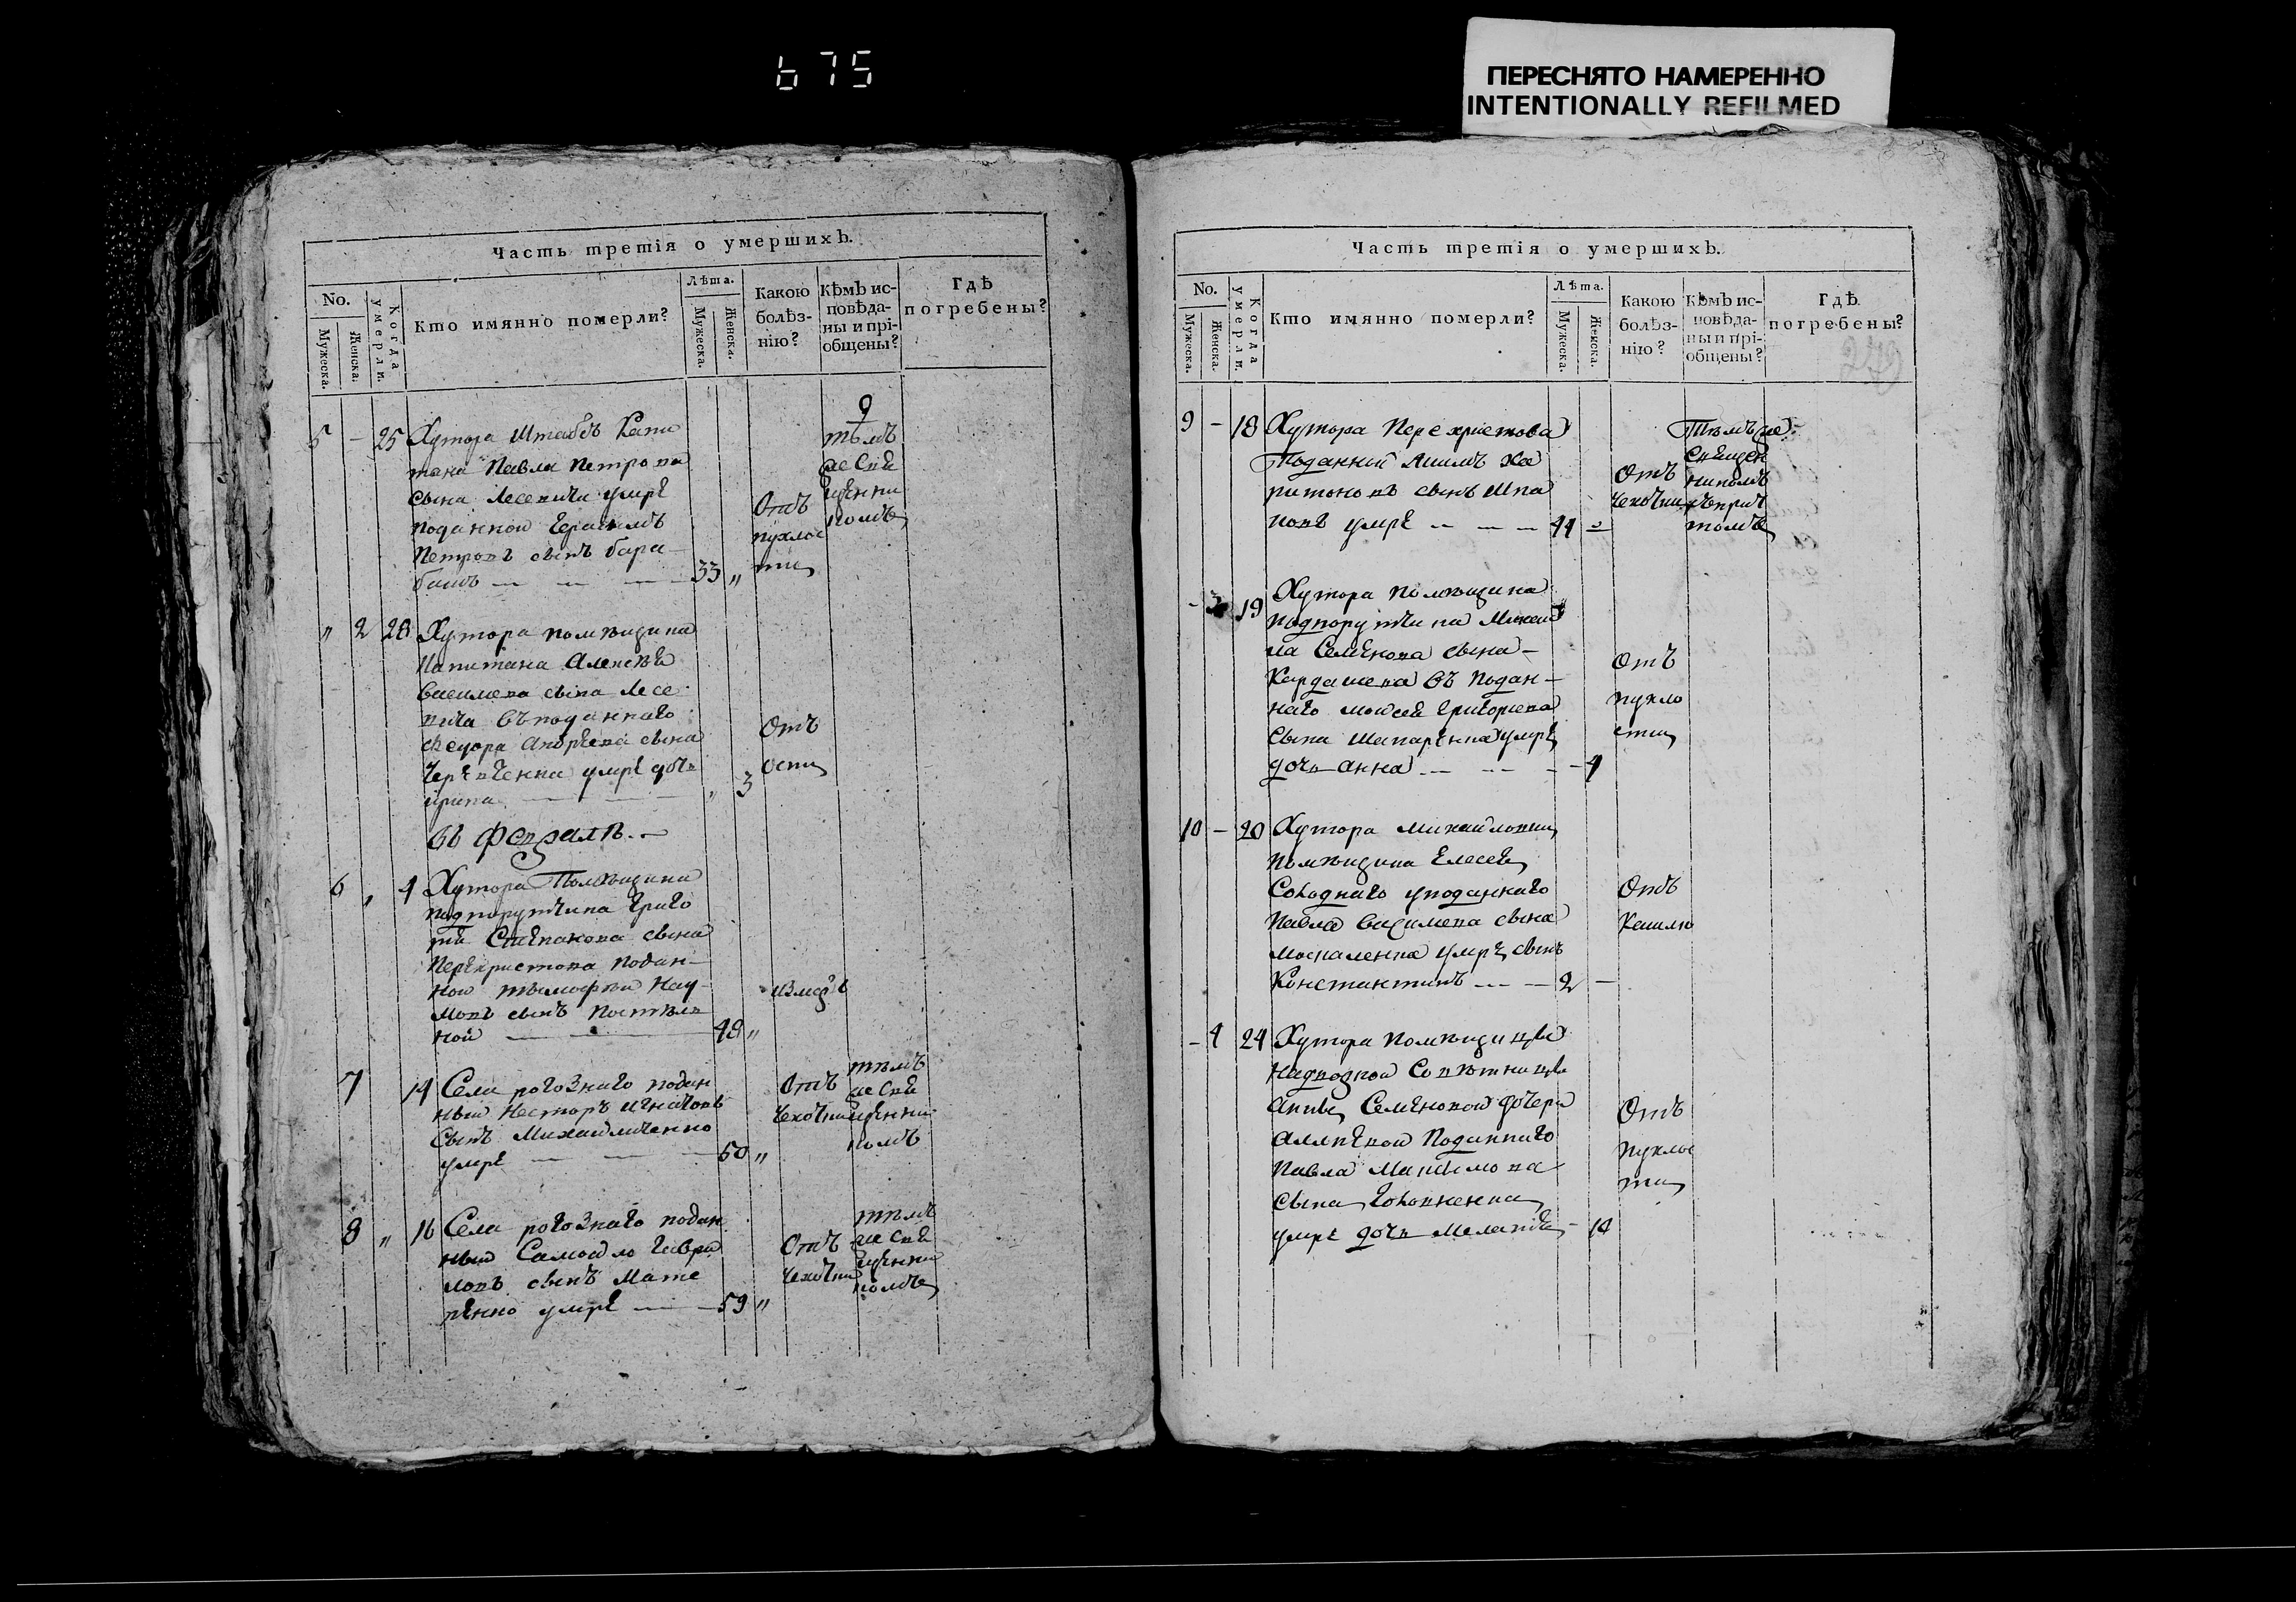 675
ПЕРЕСНЯТО НАМЕРЕННО
INTENTIONALLY REFILMED
Часть третія о умершихъ.
No.
Мужеска.
Женска.
Когда умерли.
Кто имянно померли?
Лѣта.
Мужеска.
Женска.
Какою болѣз-
нію?
Кѣмъ ис-
повѣда-
ны и прі-
общены?
Гдѣ
погребены?
9
5 - 25 Хутора Штабсъ Капи
тана Павла Петрова
сына Лесевича умре
поданной Герасимъ
Петровъ сынъ бара
башъ 33 "
Отъ
пухлос
ти
тѣмъ
же Свя
щенни
комъ
" 2 28 Хутора помѣщика
Капитана Алексѣя
Василева сына Лесе
вича въ поданнаго
Феодора Андреева сына
умре дочь
ирина " 3
Отъ
оспи
въ Февралѣ.
6 " 4 Хутора Помѣщика
подпорутчика Григо
рія Степанова сына
Перекристова подан-
ной тымофѣй Нау-
мовъ сынъ
ной 48 "
7 14 Села рогознаго подан
ный Несторъ Игнатовъ
Сынъ Михайличенко
умре 50 "
Отъ
чехотки
тѣмъ
же Свя
щенни
комъ
8 " 16 Села рогознаго подан
ный Самойло Гаври
ловъ сынъ Матв
ѣенко умре 59 "
Отъ
чехотки
тѣмъ
же Свя
щенни
комъ
Часть третія о умершихъ.
No.
Мужеска.
Женска.
Когда умерли.
Кто имянно померли?
Лѣта.
Мужеска.
Женска.
Какою болѣз-
нію?
Кѣмъ ис-
повѣда-
ны и прі-
общены?
Гдѣ
погребены?
9 - 18 Хутора Перехристова
Поданной Акимъ Ха
ритоновъ сынъ
умре 44 -
Отъ
чехотки
Тѣмъ же
Священ
никомъ
съ прич
томъ
- 3 19 Хутора помѣщика
подпорутчика Михай
ла Семенова сына
Кардашева въ подан-
наго моисея Григорева
сына умре
дочь анна 4
Отъ
пухло
сти
10 - 20 Хутора михайловки
помѣщика Елесея
у поданнаго
Павла Василева сына
москаленка умре сынъ
Константинъ 2 -
Отъ
Кашлю
- 4 24 Хутора помѣщицы
Надворной Совѣтницы
Анны Семеновой дочери
поданнаго
Павла Максимова
сына
умре дочь Меланія 10
Отъ
пухлос
ти